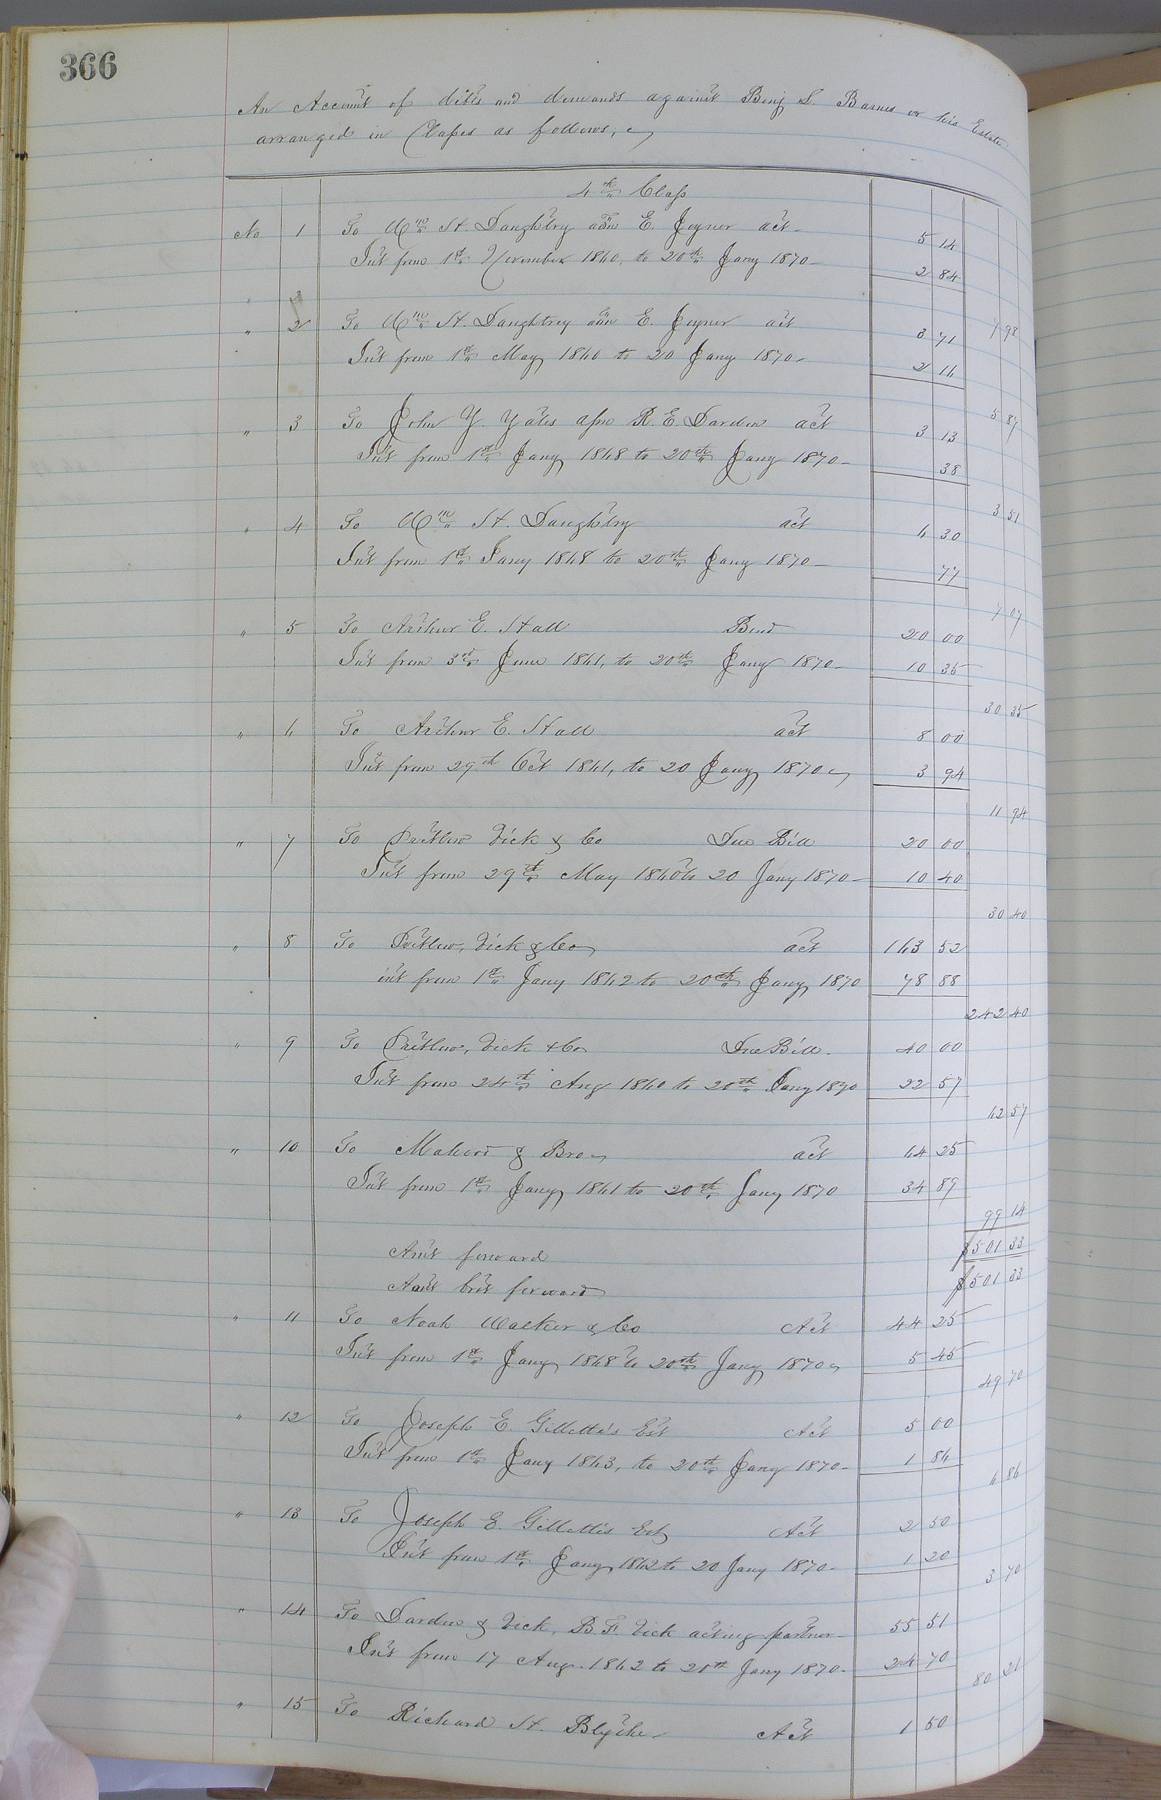 366
An Account of debts and demands against Benj S. Barnes or his Estate
arranged in Classes as follows,
4th Class
No 1 To Wm H. Daughtry adm E. Joyner act 5 14
Int from 1st November 1860, to 20th Jany 1870 2 84
7 98
" 2 To Wm H. Daughtrey adm E. Joyner act 3 71
Int from 1st May 1860 to 20 Jany 1870 2 16
5 87
" 3 To John Y. Yates assn R. E. Darden act 3 13
Int from 1st Jany 1868 to 20th Jany 1870 38
3 51
" 4 To Wm H. Daughtry act 6 30
Int from 1st Jany 1868 to 20th Jany 1870 77
7 07
" 5 To Arthur E. Hall Bond 20 00
Int from 3rd June 1861, to 20th Jany 1870 10 35
30 35
" 6 To Arthur E. Hall act 8 00
Int from 29th Oct 1861, to 20 Jany 1870 3 94
11 94
" 7 To Pretlow Vick & Co Due Bill 20 00
Int from 29th May 1860 to 20 Jany 1870 10 40
30 40
" 8 To Pretlow, Vick & Co act 163 52
int from 1st Jany 1862 to 20th Jany 1870 78 88
242 40
" 9 To Pretlow, Vick & Co Due Bill 40 00
Int from 24th Aug 1860 to 20th Jany 1870 22 57
62 57
" 10 To & Bro act 64 25
Int from 1st Jany 1861 to 20th Jany 1870 34 89
99 14
Amt forward $501 33
Amt brot forward $501 33
" 11 To Noah Walker & Co Act 44 25
Int from 1st Jany 1868 to 20th Jany 1870 5 45
49 70
" 12 To Joseph E. Gillette's Est Act 5 00
Int from 1st Jany 1863, to 20th Jany 1870 1 86
6 86
" 13 To Joseph E. Gillette's Est Act 2 50
Int from 1st Jany 1862 to 20 Jany 1870 1 20
3 70
" 14 To Darden & Vick, B. F. Vick acting partner 55 51
Int from 17 Aug. 1862 to 20th Jany 1870 24 70
80 21
" 15 To Richard H. Blythe Act 1 50